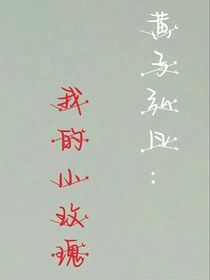 黄子弘凡：
我的小玫瑰